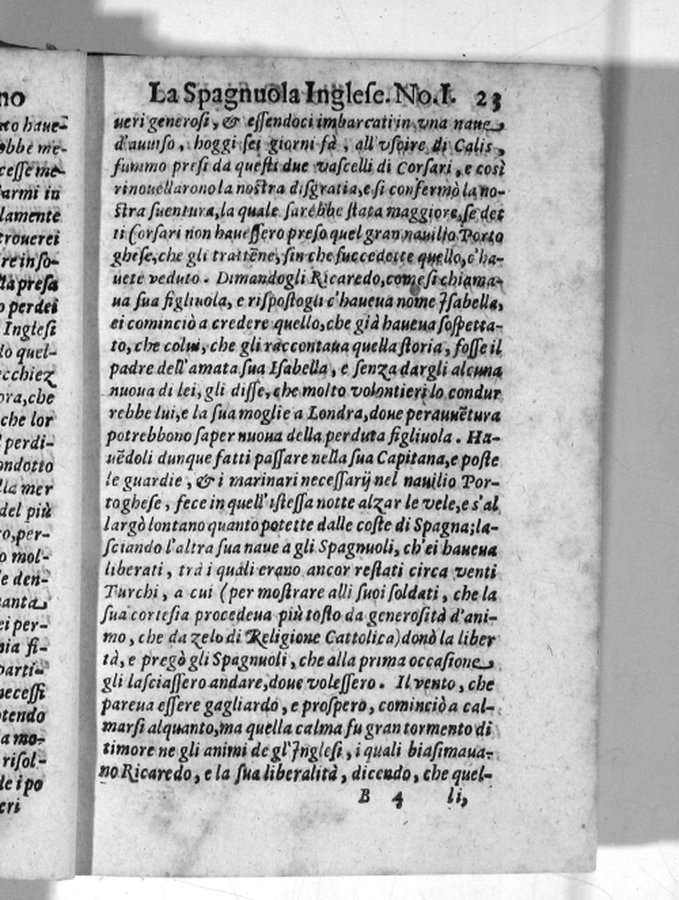 La Spagnuola Inglese. No.I. 23
ueri generosi, & essendoci imbarcati in vna naue
d'auuiso, hoggi sei giorni fà, all'vscire di Calis,
fummo presi da questi due vascelli di Corsari, e così
rinouellarono la nostra disgratia, e si confermò la no-
stra suentura, la quale sarebbe stata maggiore, se det
ti Corsari non hauessero preso quel gran nauilio Porto
ghese, che gli trattēne, sin che succedette quello, c'ha-
uete veduto. Dimandogli Ricaredo, come si chiama-
ua sua figliuola, e rispostogli c'haueua nome Isabella,
ei cominciò a credere quello, che già haueua sospetta-
to, che colui, che gli raccontaua quella storia, fosse il
padre dell'amata sua Isabella, e senza dargli alcuna
nuoua di lei, gli disse, che molto volontieri lo condur
rebbe lui, e la sua moglie a Londra, doue perauuētura
potrebbono saper nuoua della perduta figliuola. Ha-
uēdoli dunque fatti passare nella sua Capitana, e poste
le guardie, & i marinari necessarij nel nauilio Por-
toghese, fece in quell'istessa notte alzar le vele, e s'al
largò lontano quanto potette dalle coste di Spagna; la-
sciando l'altra sua naue a gli Spagnuoli, ch'ei haueua
liberati, trà i quali erano ancor restati circa venti
Turchi, a cui (per mostrare alli suoi soldati, che la
sua cortesia procedeua più tosto da generosità d'ani-
mo, che da zelo di Religione Cattolica) donò la liber
tà, e pregò gli Spagnuoli, che alla prima occasione
gli lasciassero andare, doue volessero. Il vento, che
pareua essere gagliardo, e prospero, cominciò a cal-
marsi alquanto, ma quella calma fu gran tormento di
timore ne gli animi de gl'Inglesi, i quali biasimaua-
no Ricaredo, e la sua liberalità, dicendo, che quel-
B 4 li,